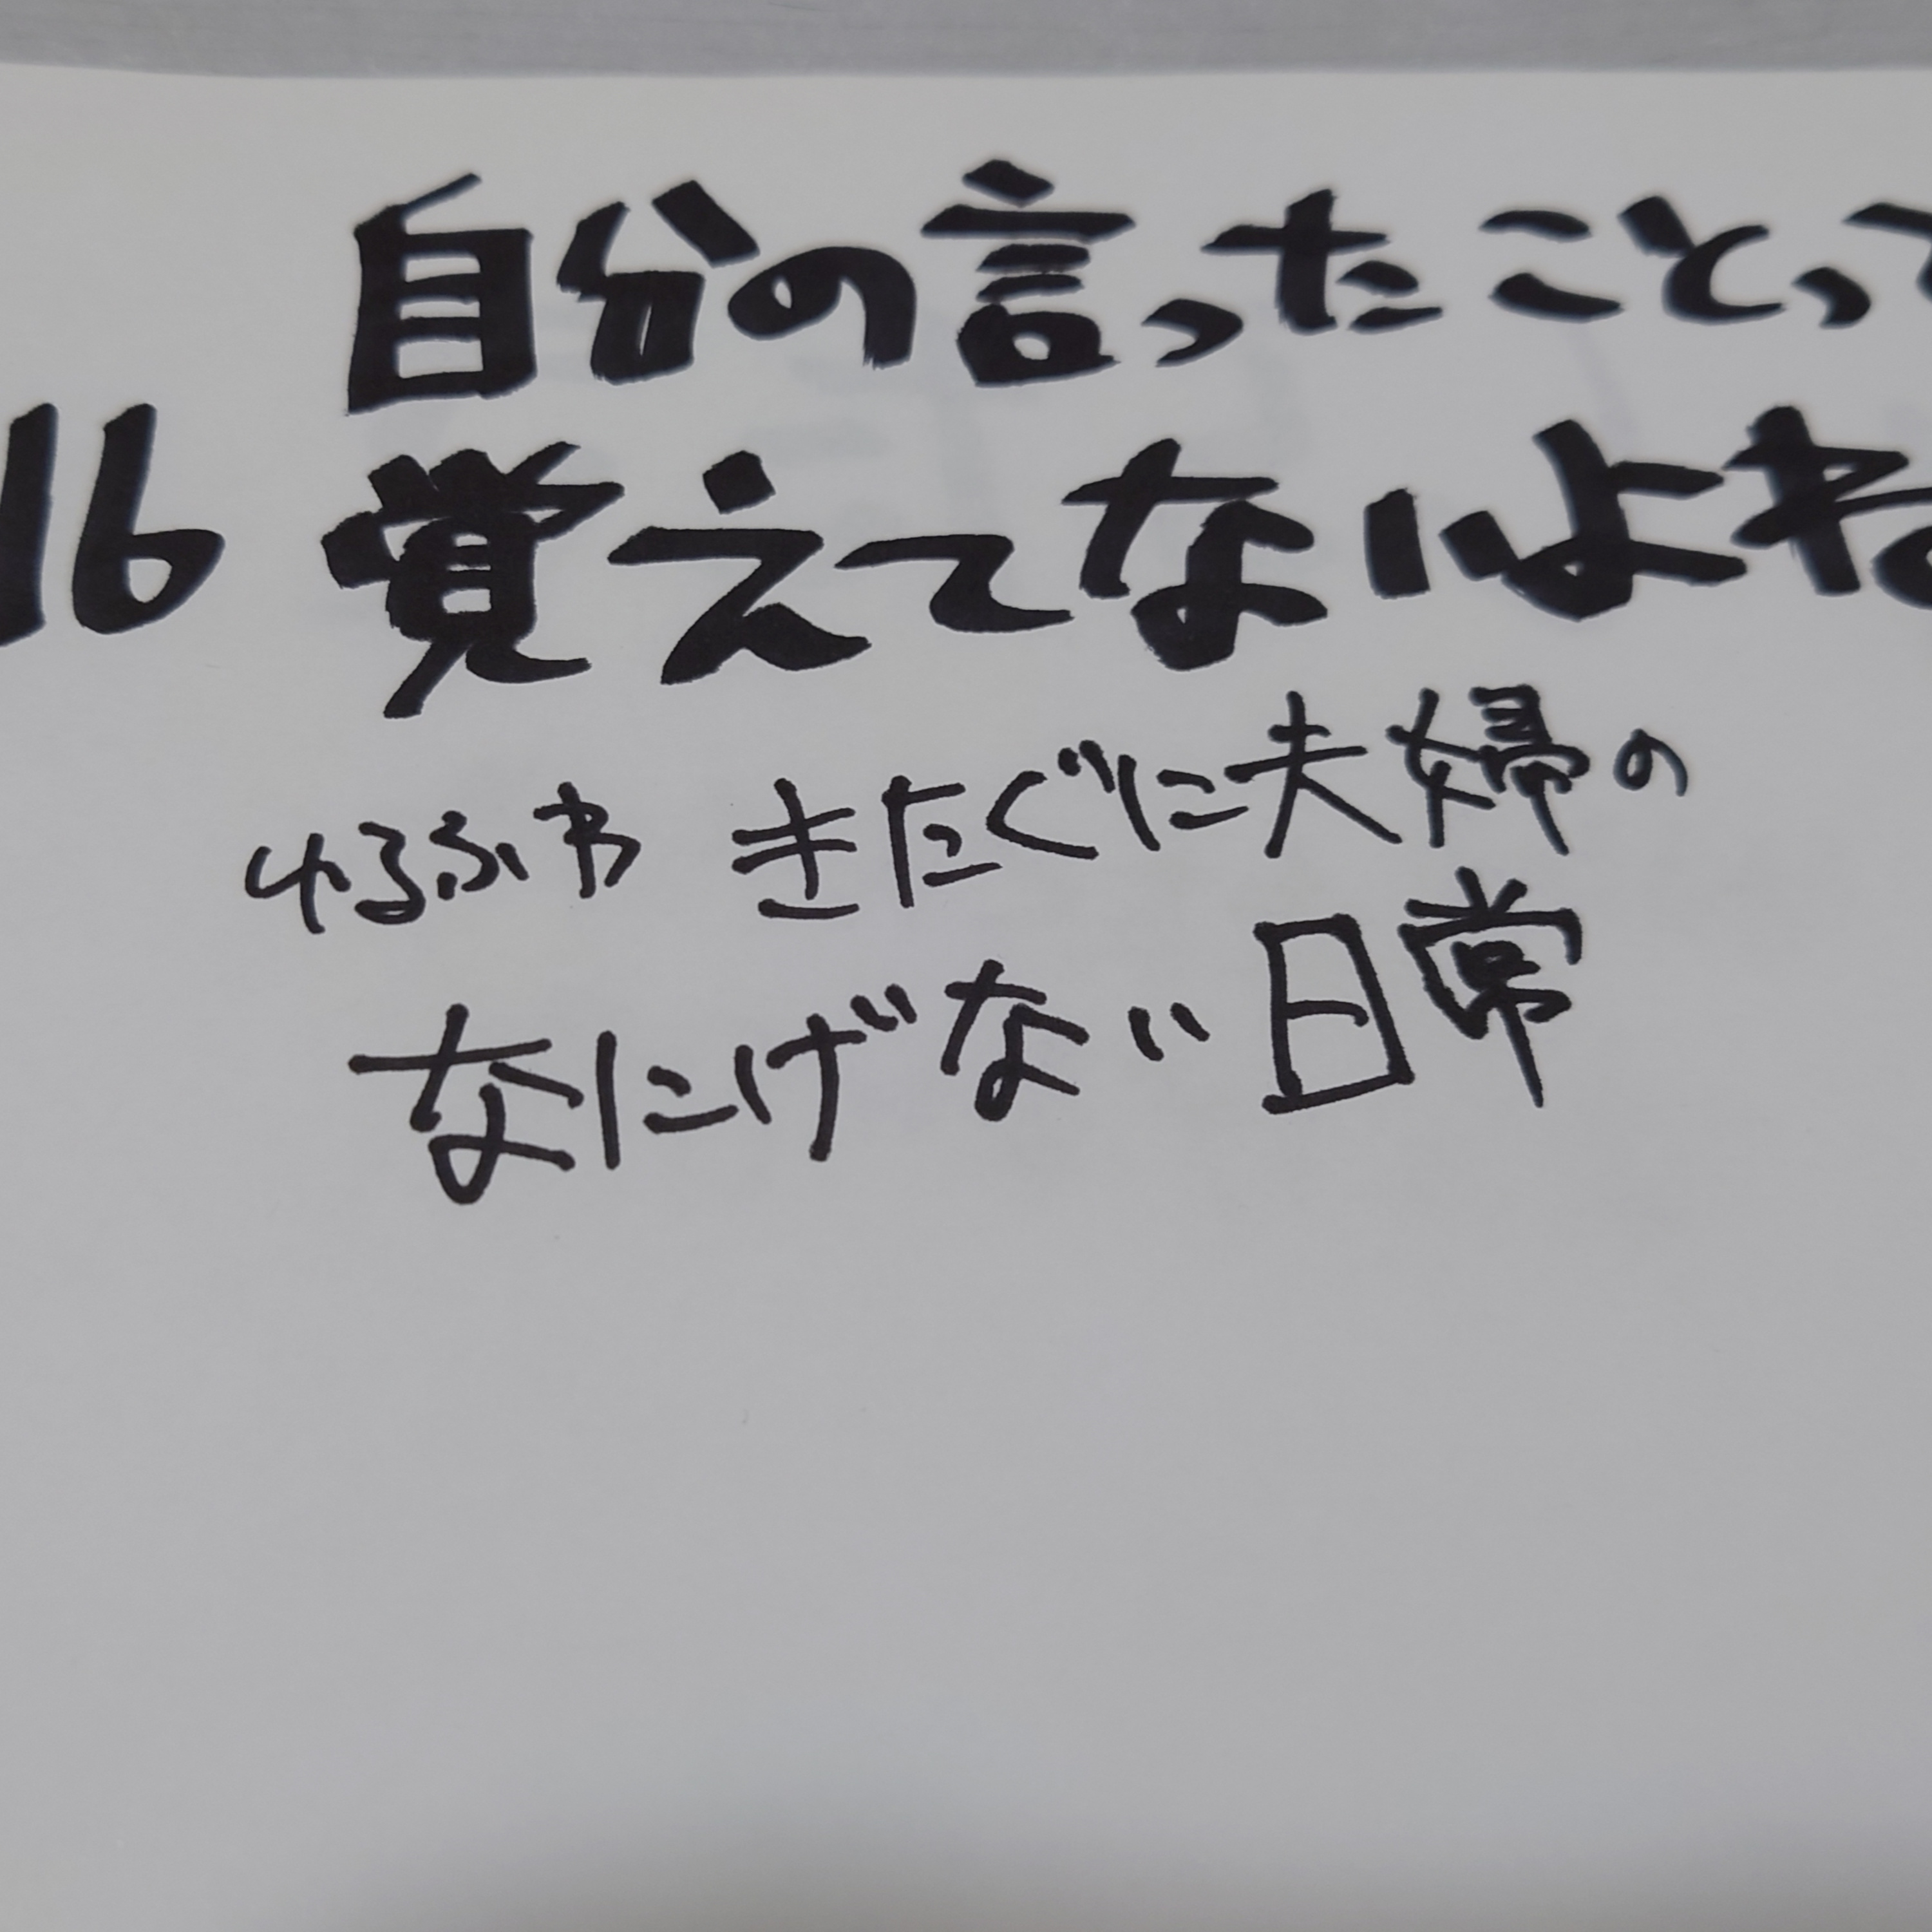 自分の言ったことって
16 覚えてないよね
ゆるふわ きたぐに夫婦の
なにげない日常